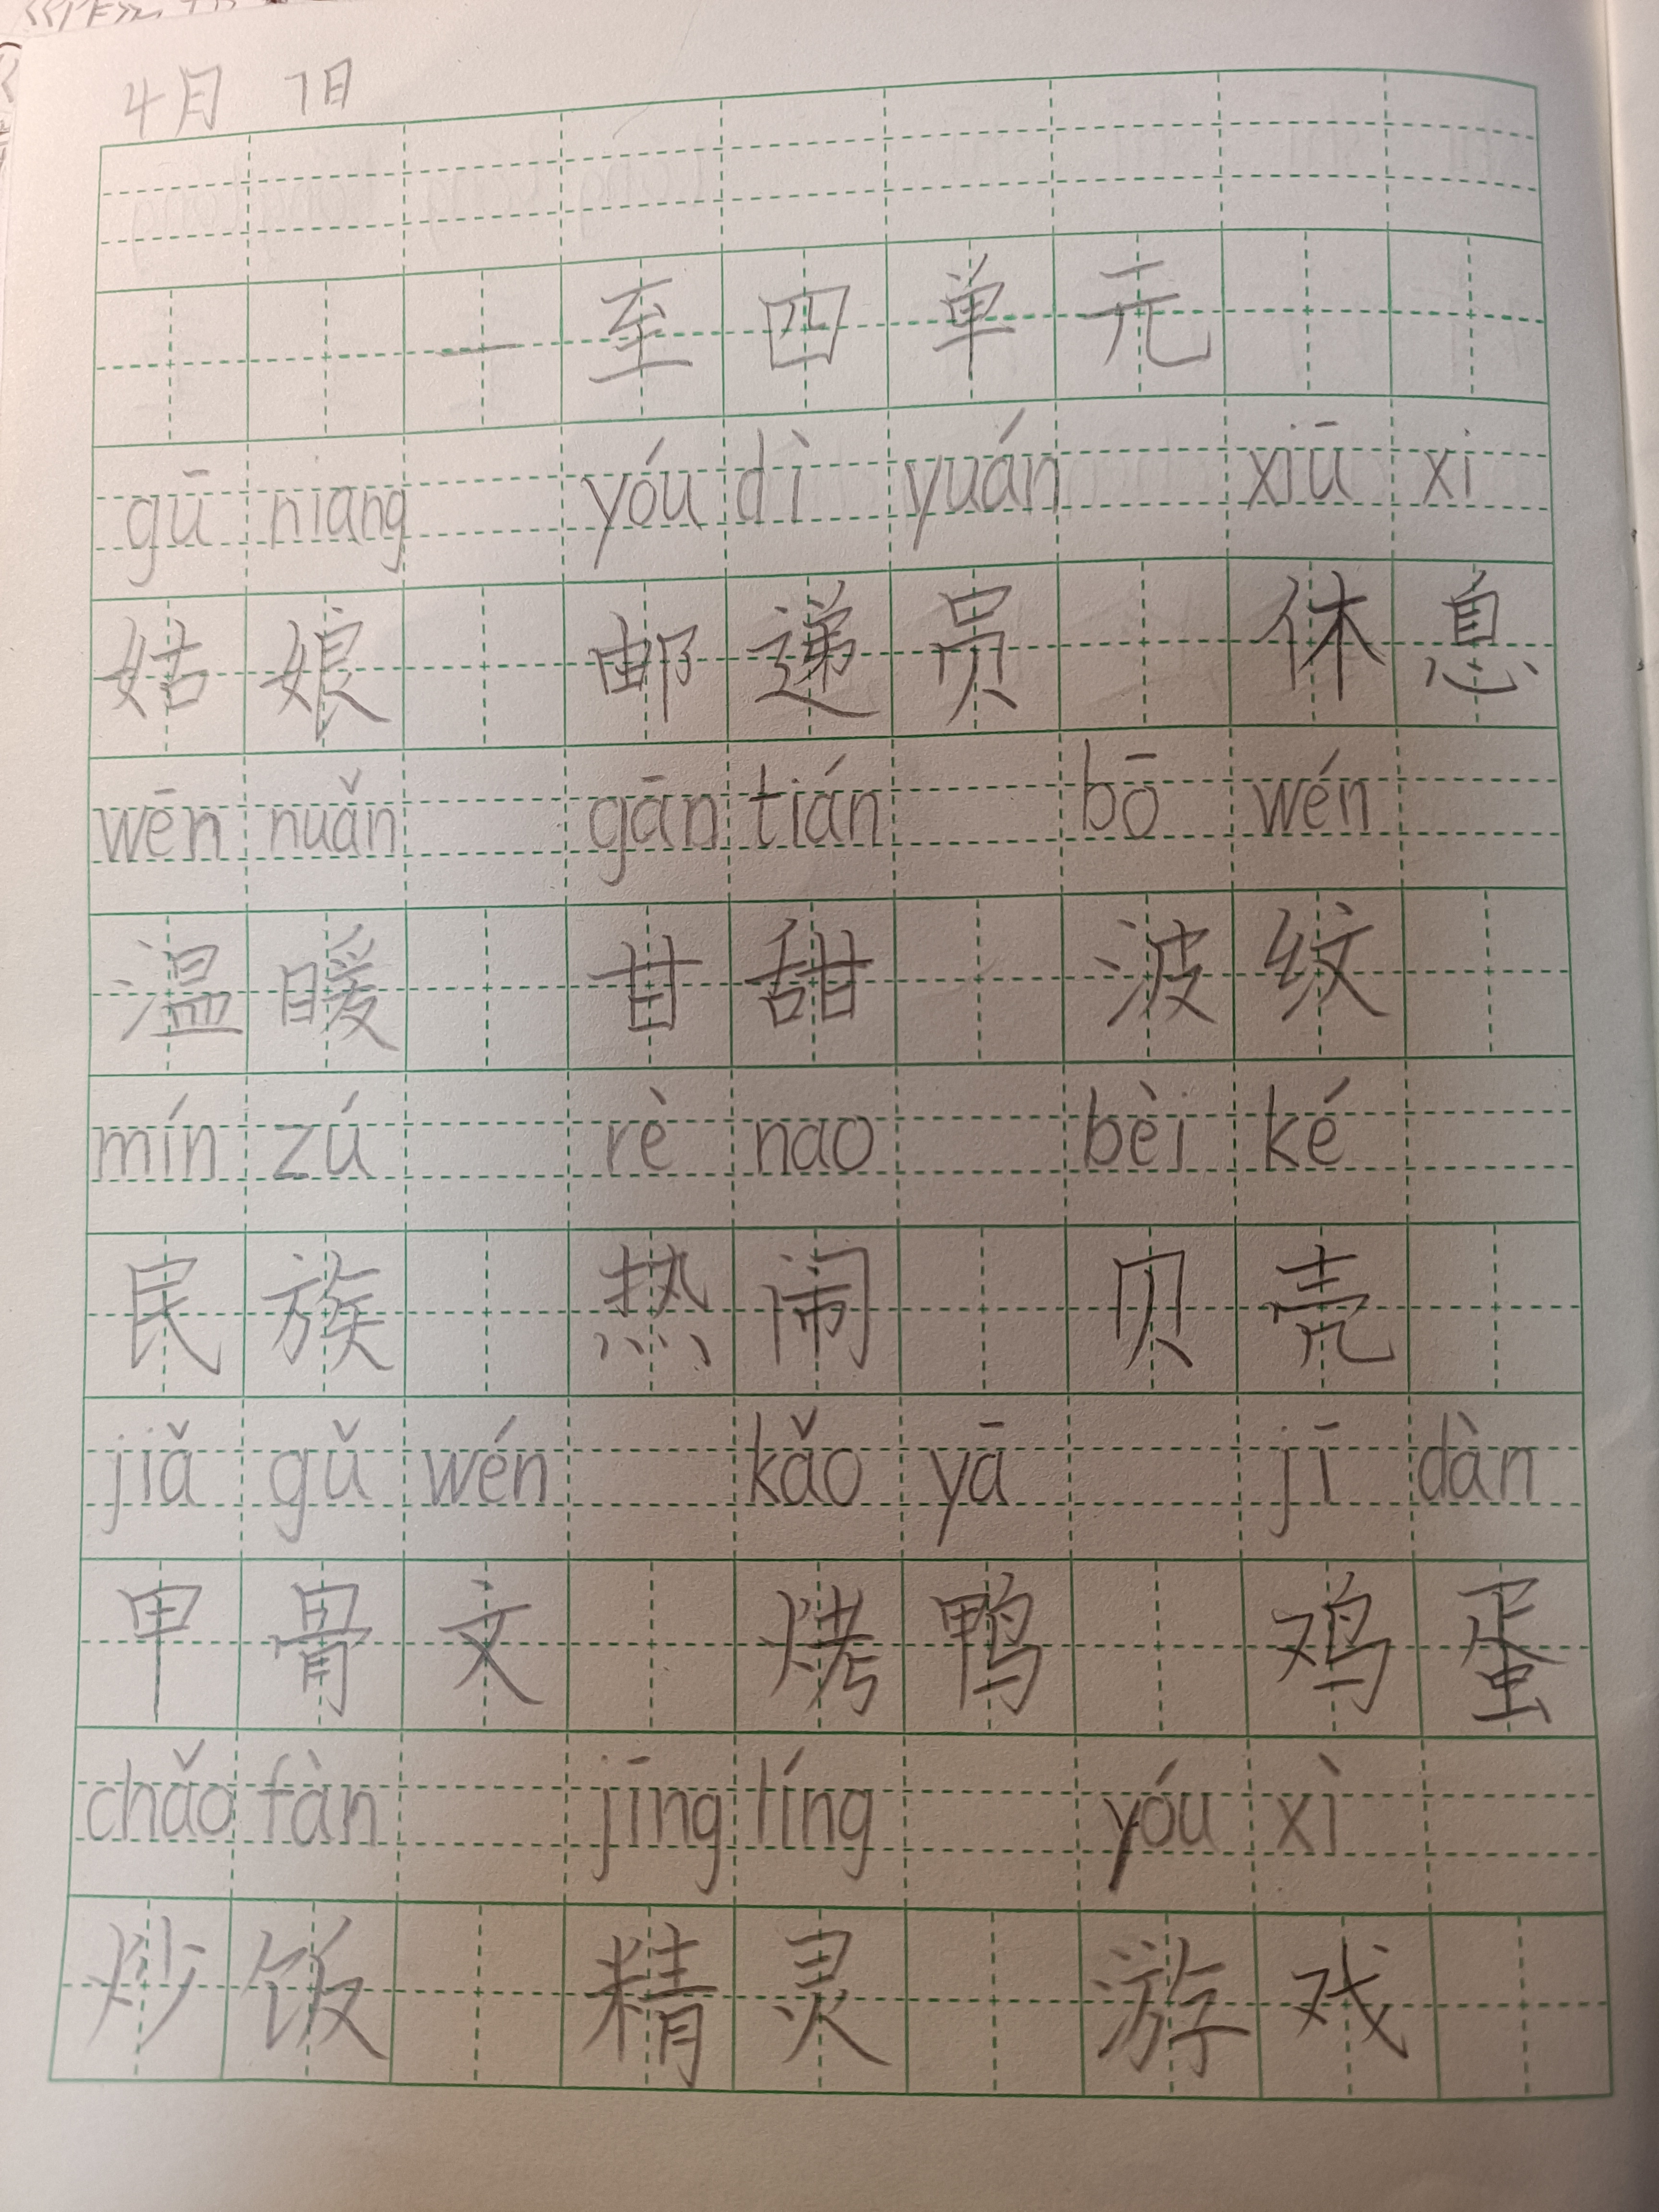 4月 7日
一至四单元
gū niang yóu dì yuán xiū xi
姑娘 邮递员 休息
wēn nuǎn gān tián bō wén
温暖 甘甜 波纹
mín zú rè nao bèi ké
民族 热闹 贝壳
jiǎ gǔ wén kǎo yā jī dàn
甲骨文 烤鸭 鸡蛋
chǎo fàn jīng líng yóu xì
炒饭 精灵 游戏